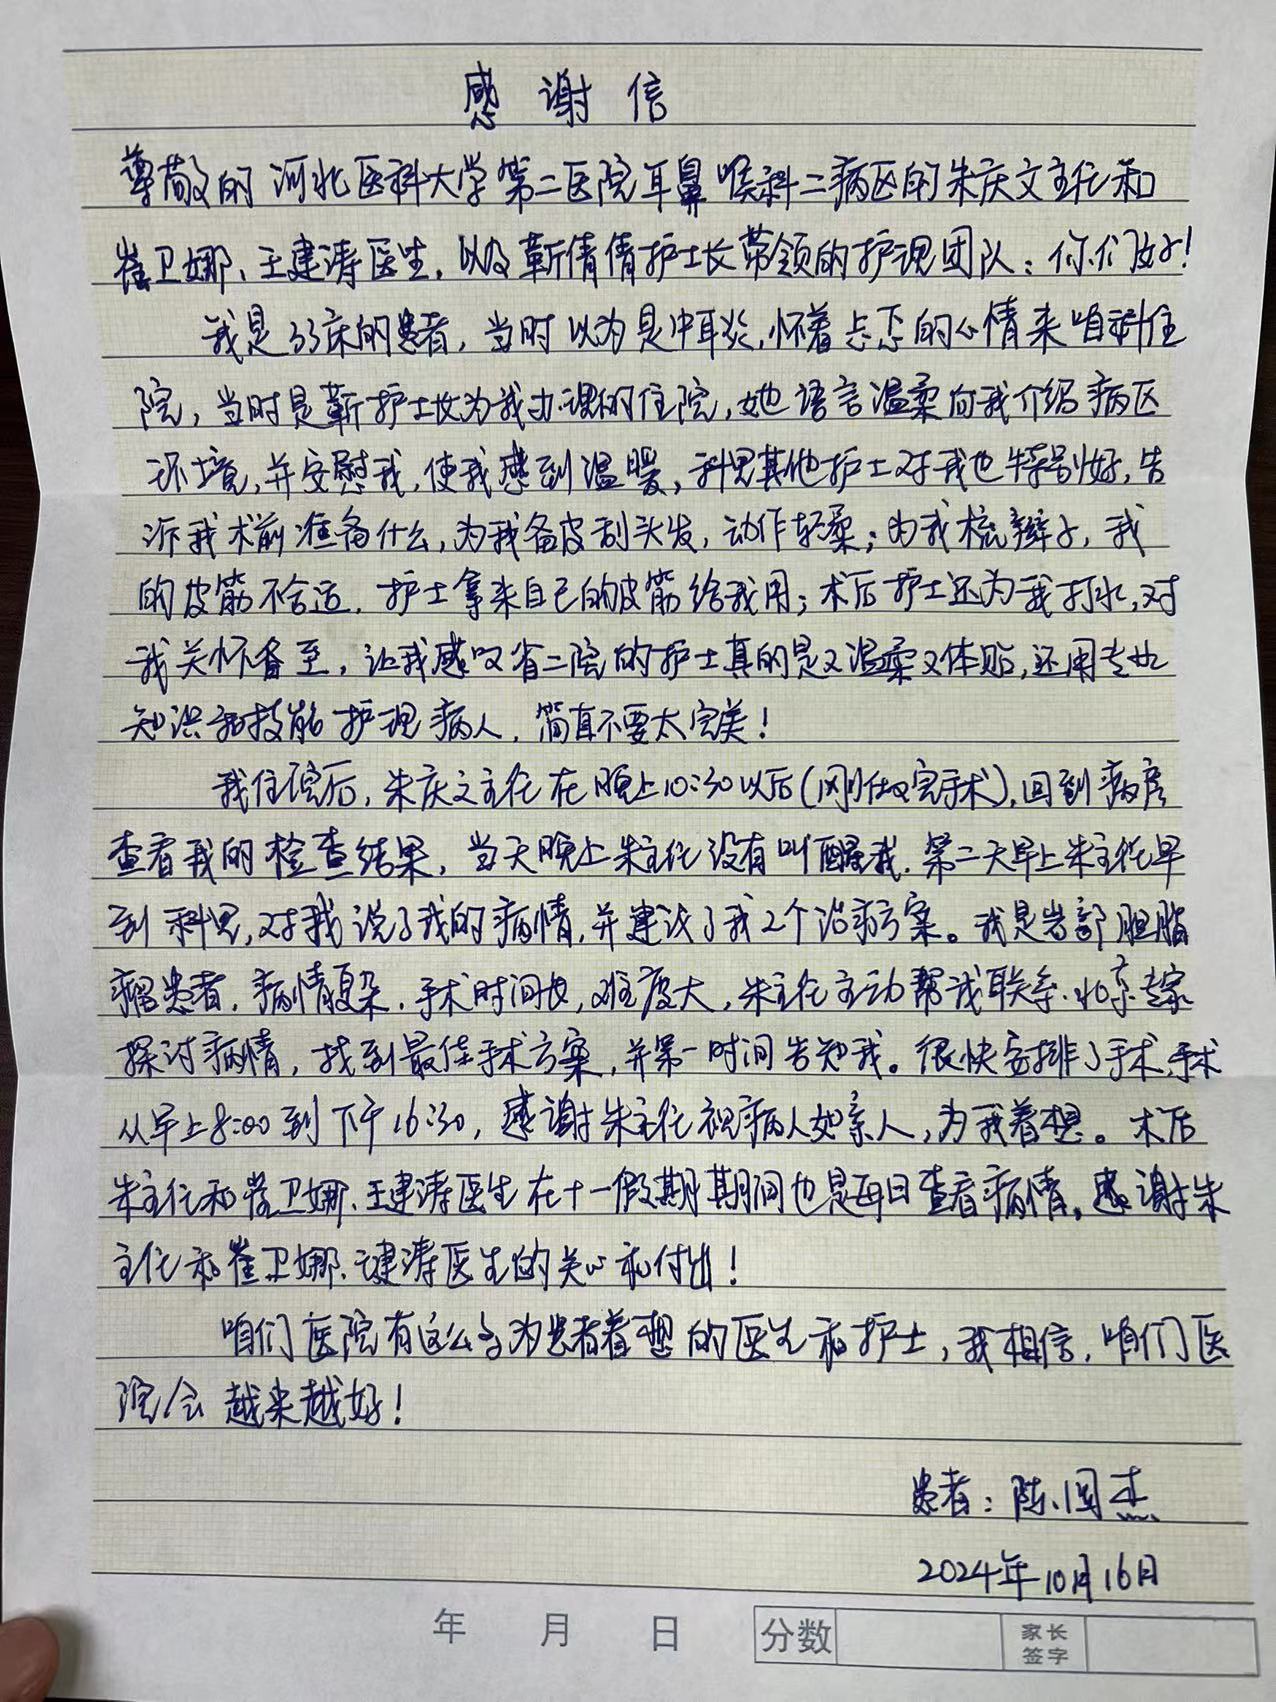 感谢信
尊敬的河北医科大学第二医院耳鼻喉科二病区的朱庆文主任和
崔卫娜、王建涛医生，以及靳倩倩护士长带领的护理团队：你们好！
我是33床的患者，当时以为是中耳炎，怀着忐忑的心情来咱科住
院，当时是靳护士长为我办理的住院，她语言温柔向我介绍病区
环境，并安慰我，使我感到温暖，科里其他护士对我也特别好，告
诉我术前准备什么，为我备皮刮头发，动作轻柔；为我梳辫子，我
的皮筋不合适，护士拿来自己的皮筋给我用；术后护士还为我打水，对
我关怀备至，让我感叹省二院的护士真的是又温柔又体贴，还用专业
知识和技能护理病人，简直不要太完美！
我住院后，朱庆文主任在晚上10:30以后(刚做完手术)，回到病房
查看我的检查结果，当天晚上朱主任没有叫醒我，第二天早上朱主任早
到科里，对我说了我的病情，并建议了我2个治疗方案。我是岩部胆脂
瘤患者，病情复杂，手术时间长，难度大，朱主任主动帮我联系北京专家
探讨病情，找到最佳手术方案，并第一时间告知我。很快安排了手术，手术
从早上8:00到下午16:30，感谢朱主任视病人如亲人，为我着想。术后
朱主任和崔卫娜、王建涛医生在十一假期期间也是每日查看病情，感谢朱
主任和崔卫娜、王建涛医生的关心和付出！
咱们医院有这么多为患者着想的医生和护士，我相信，咱们医
院会越来越好！
患者：陈国杰
2024年10月16日
年 月 日 分数 家长签字